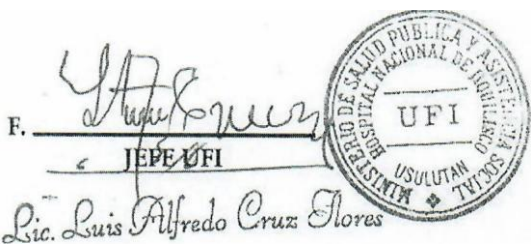 F.
JEFE UFI
Lic. Luis Alfredo Cruz Flores
MINISTERIO DE SALUD PUBLICA Y ASISTENCIA SOCIAL
HOSPITAL NACIONAL DE JIQUILISCO
UFI
USULUTAN